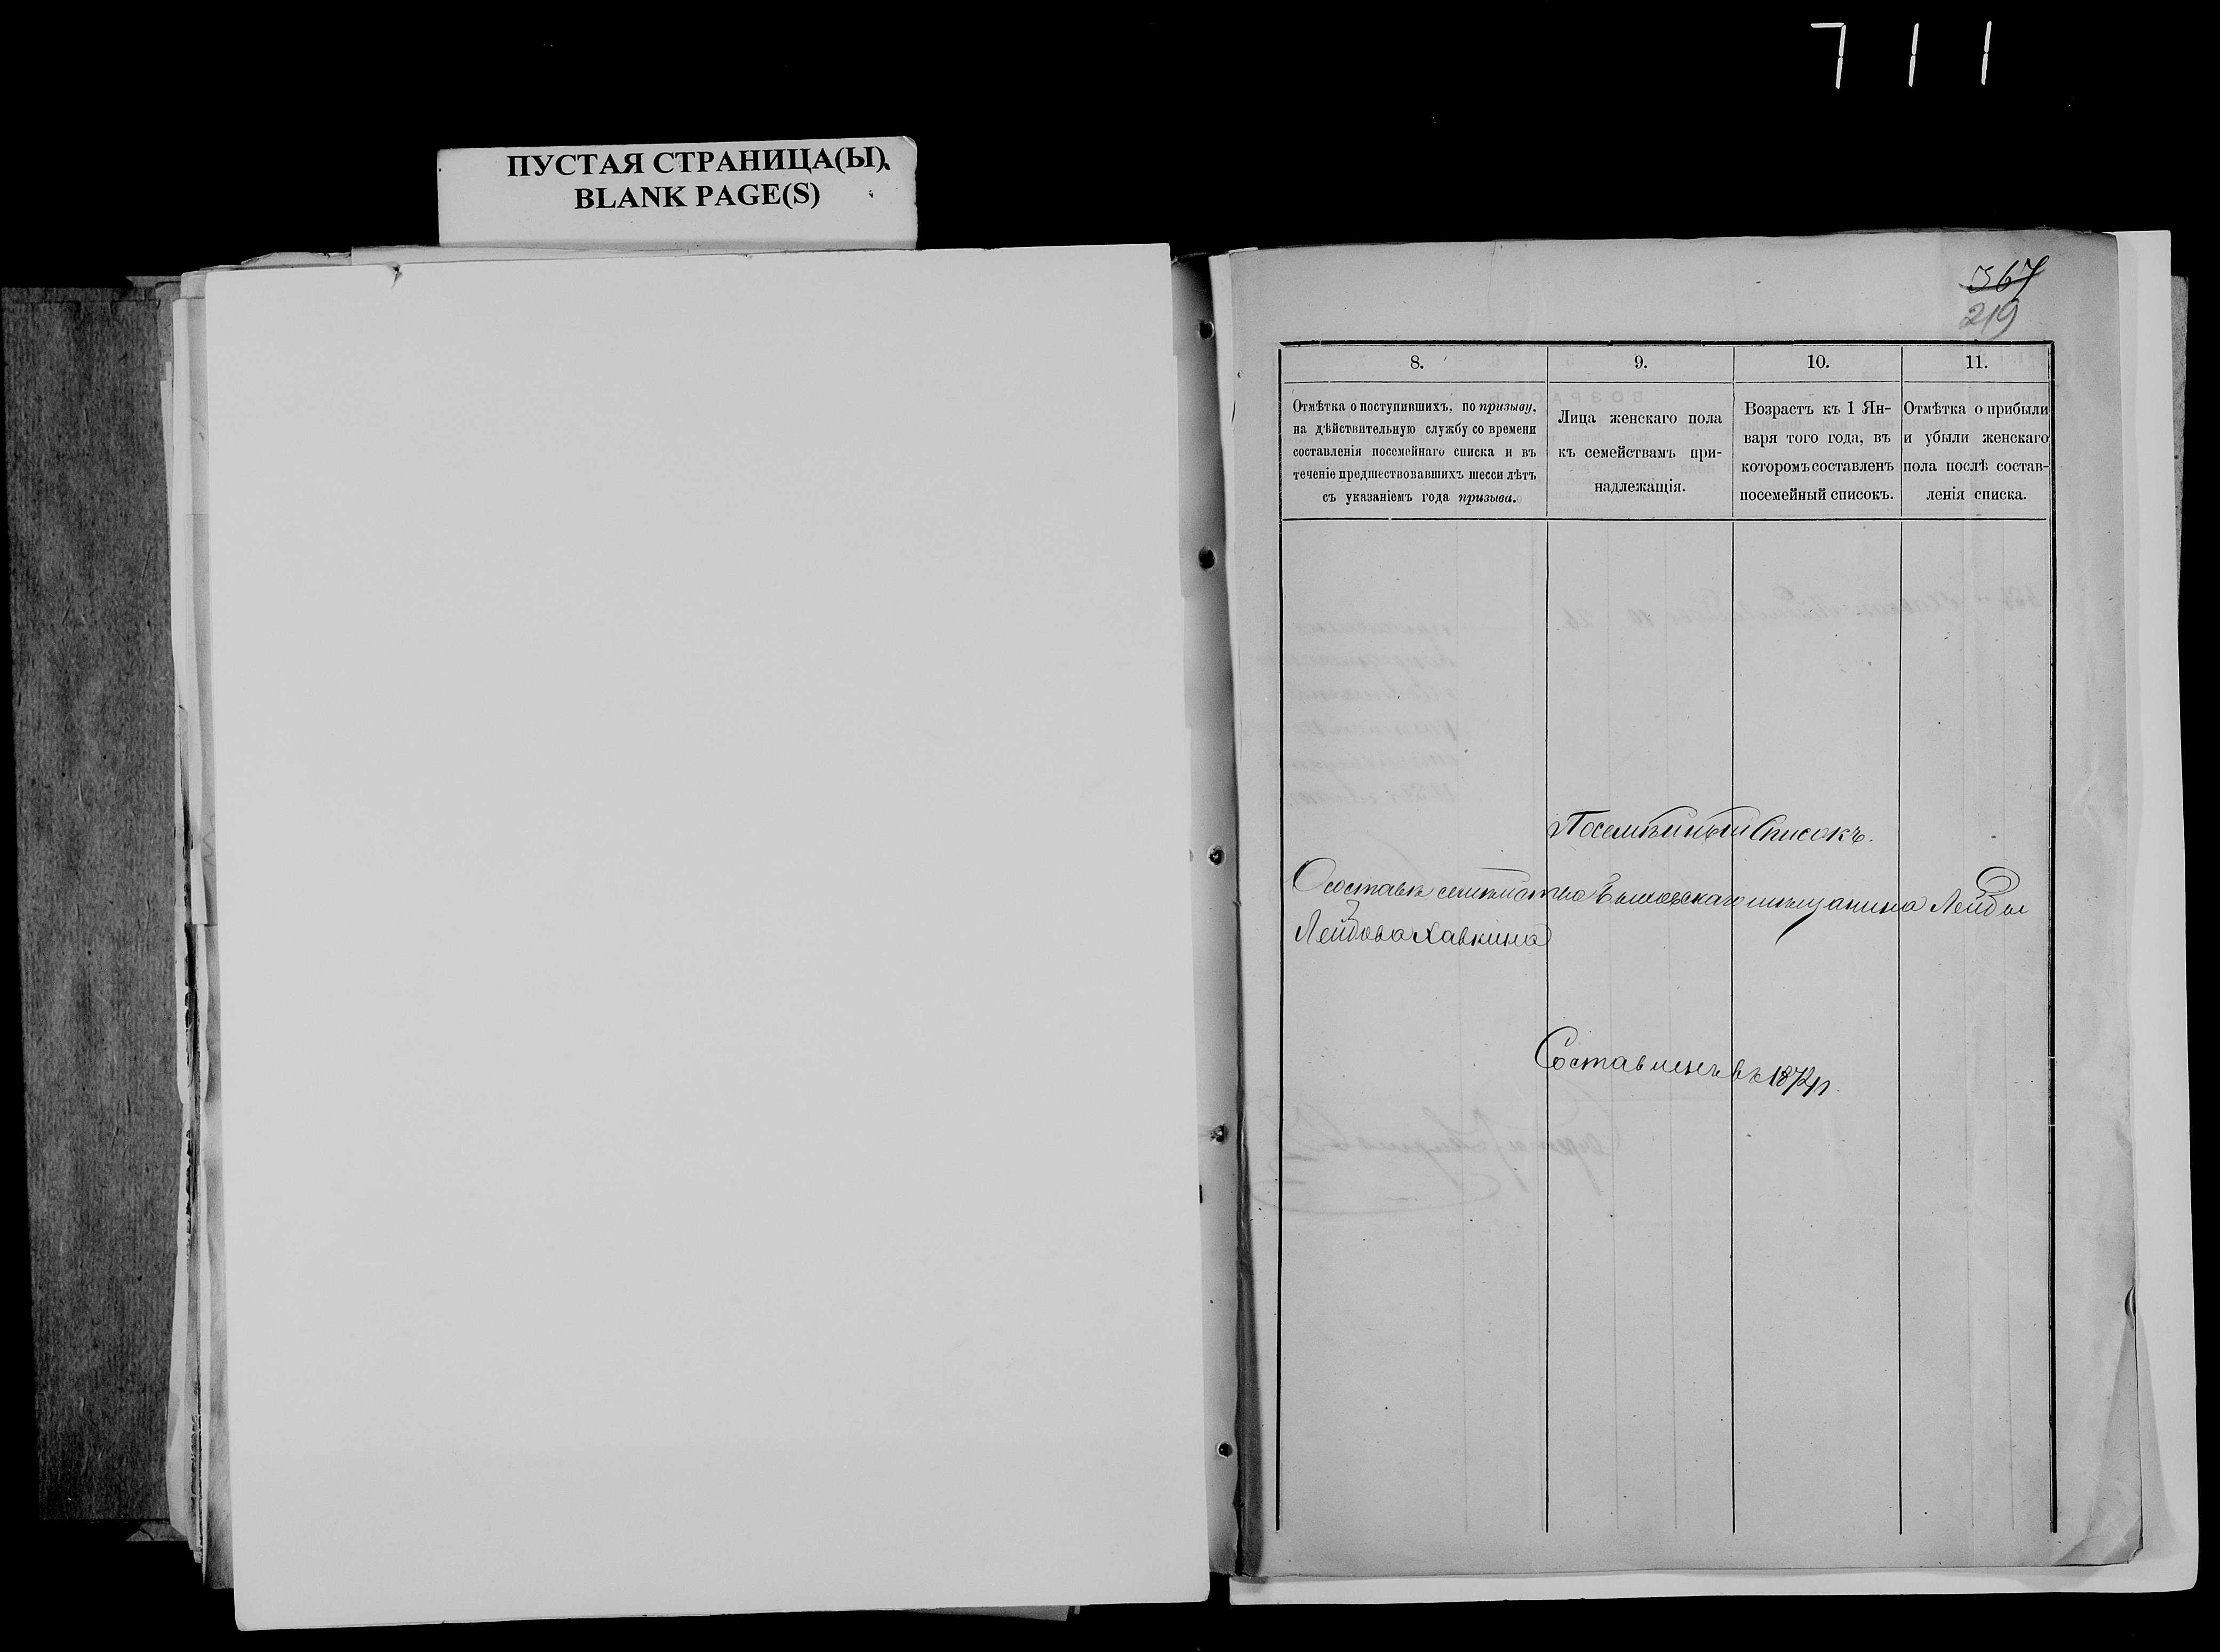 711
ПУСТАЯ СТРАНИЦА(Ы)
BLANK PAGE(S)
367
219
8.
Отмѣтка о поступившихъ, по призыву,
на дѣйствительную службу со времени
составленія посемейнаго списка и въ
теченіе предшествовавшихъ шести лѣтъ
съ указаніемъ года призыва.
9.
Лица женскаго пола
къ семействамъ при-
надлежащія.
10.
Возрастъ къ 1 Ян-
варя того года, въ
которомъ составленъ
посемейный списокъ.
11.
Отмѣтка о прибыли
и убыли женскаго
пола послѣ состав-
ленія списка.
Посемѣйный Списокъ.
О составѣ семѣйства мѣщанина Лейбы
Лейбова Хавкина
Составленъ въ 1874 г.